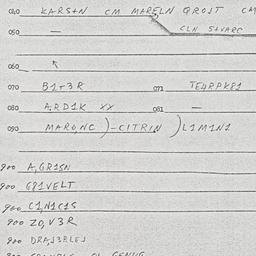 040 KARSTN CM MARELN GROST CM
050 — CLN STVARC
060
070 B1T3R 071 TE4RPK81
080 A,RD1K XX 081 —
090 MARO,NC)-CITRIN)L1M1N1
900 A,GR1SN
900 G81VELT
900 C1,N1C1S
900 ZO,V3R
900 DRA,J3RLEJ